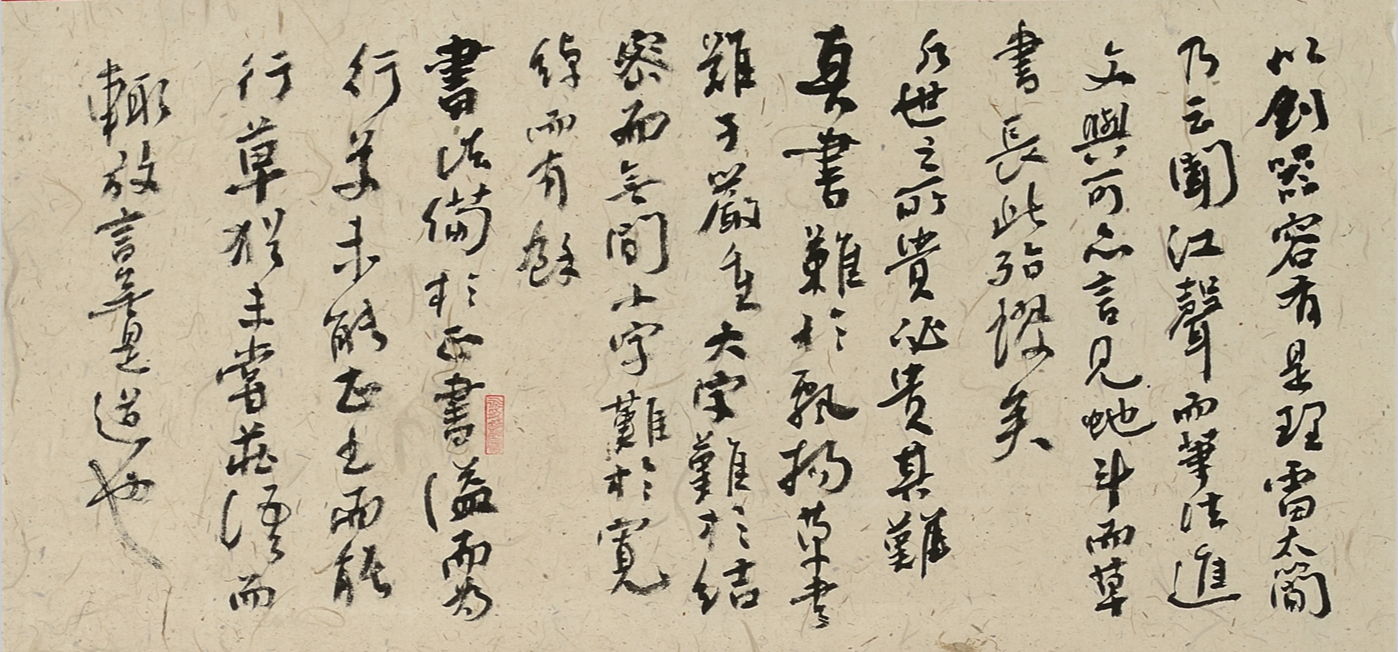 以劍器容有是理雷太簡
乃云聞江聲而筆法進
文與可亦言見蛇斗而草
書長此殆謬矣
凡世之所貴必貴其難
真書難於飄揚草書
難于嚴重大字難於結
密而無間小字難於寬
綽而有餘
書法備於正書溢而為
行草未能正書而能
行草猶未嘗莊語而
輒放言無是道也